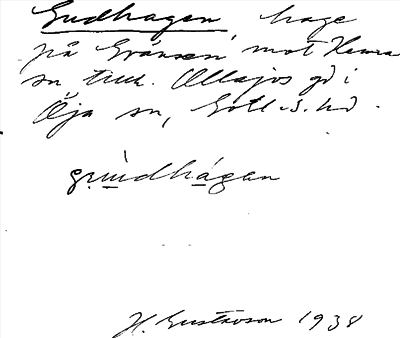 Gudhagen, hage
på Gränsen mot Hemra
sn, till. Ollajvs gd i
Öja sn, Gotl. s. hd.
grùndhágan
H. Gustavson 1938